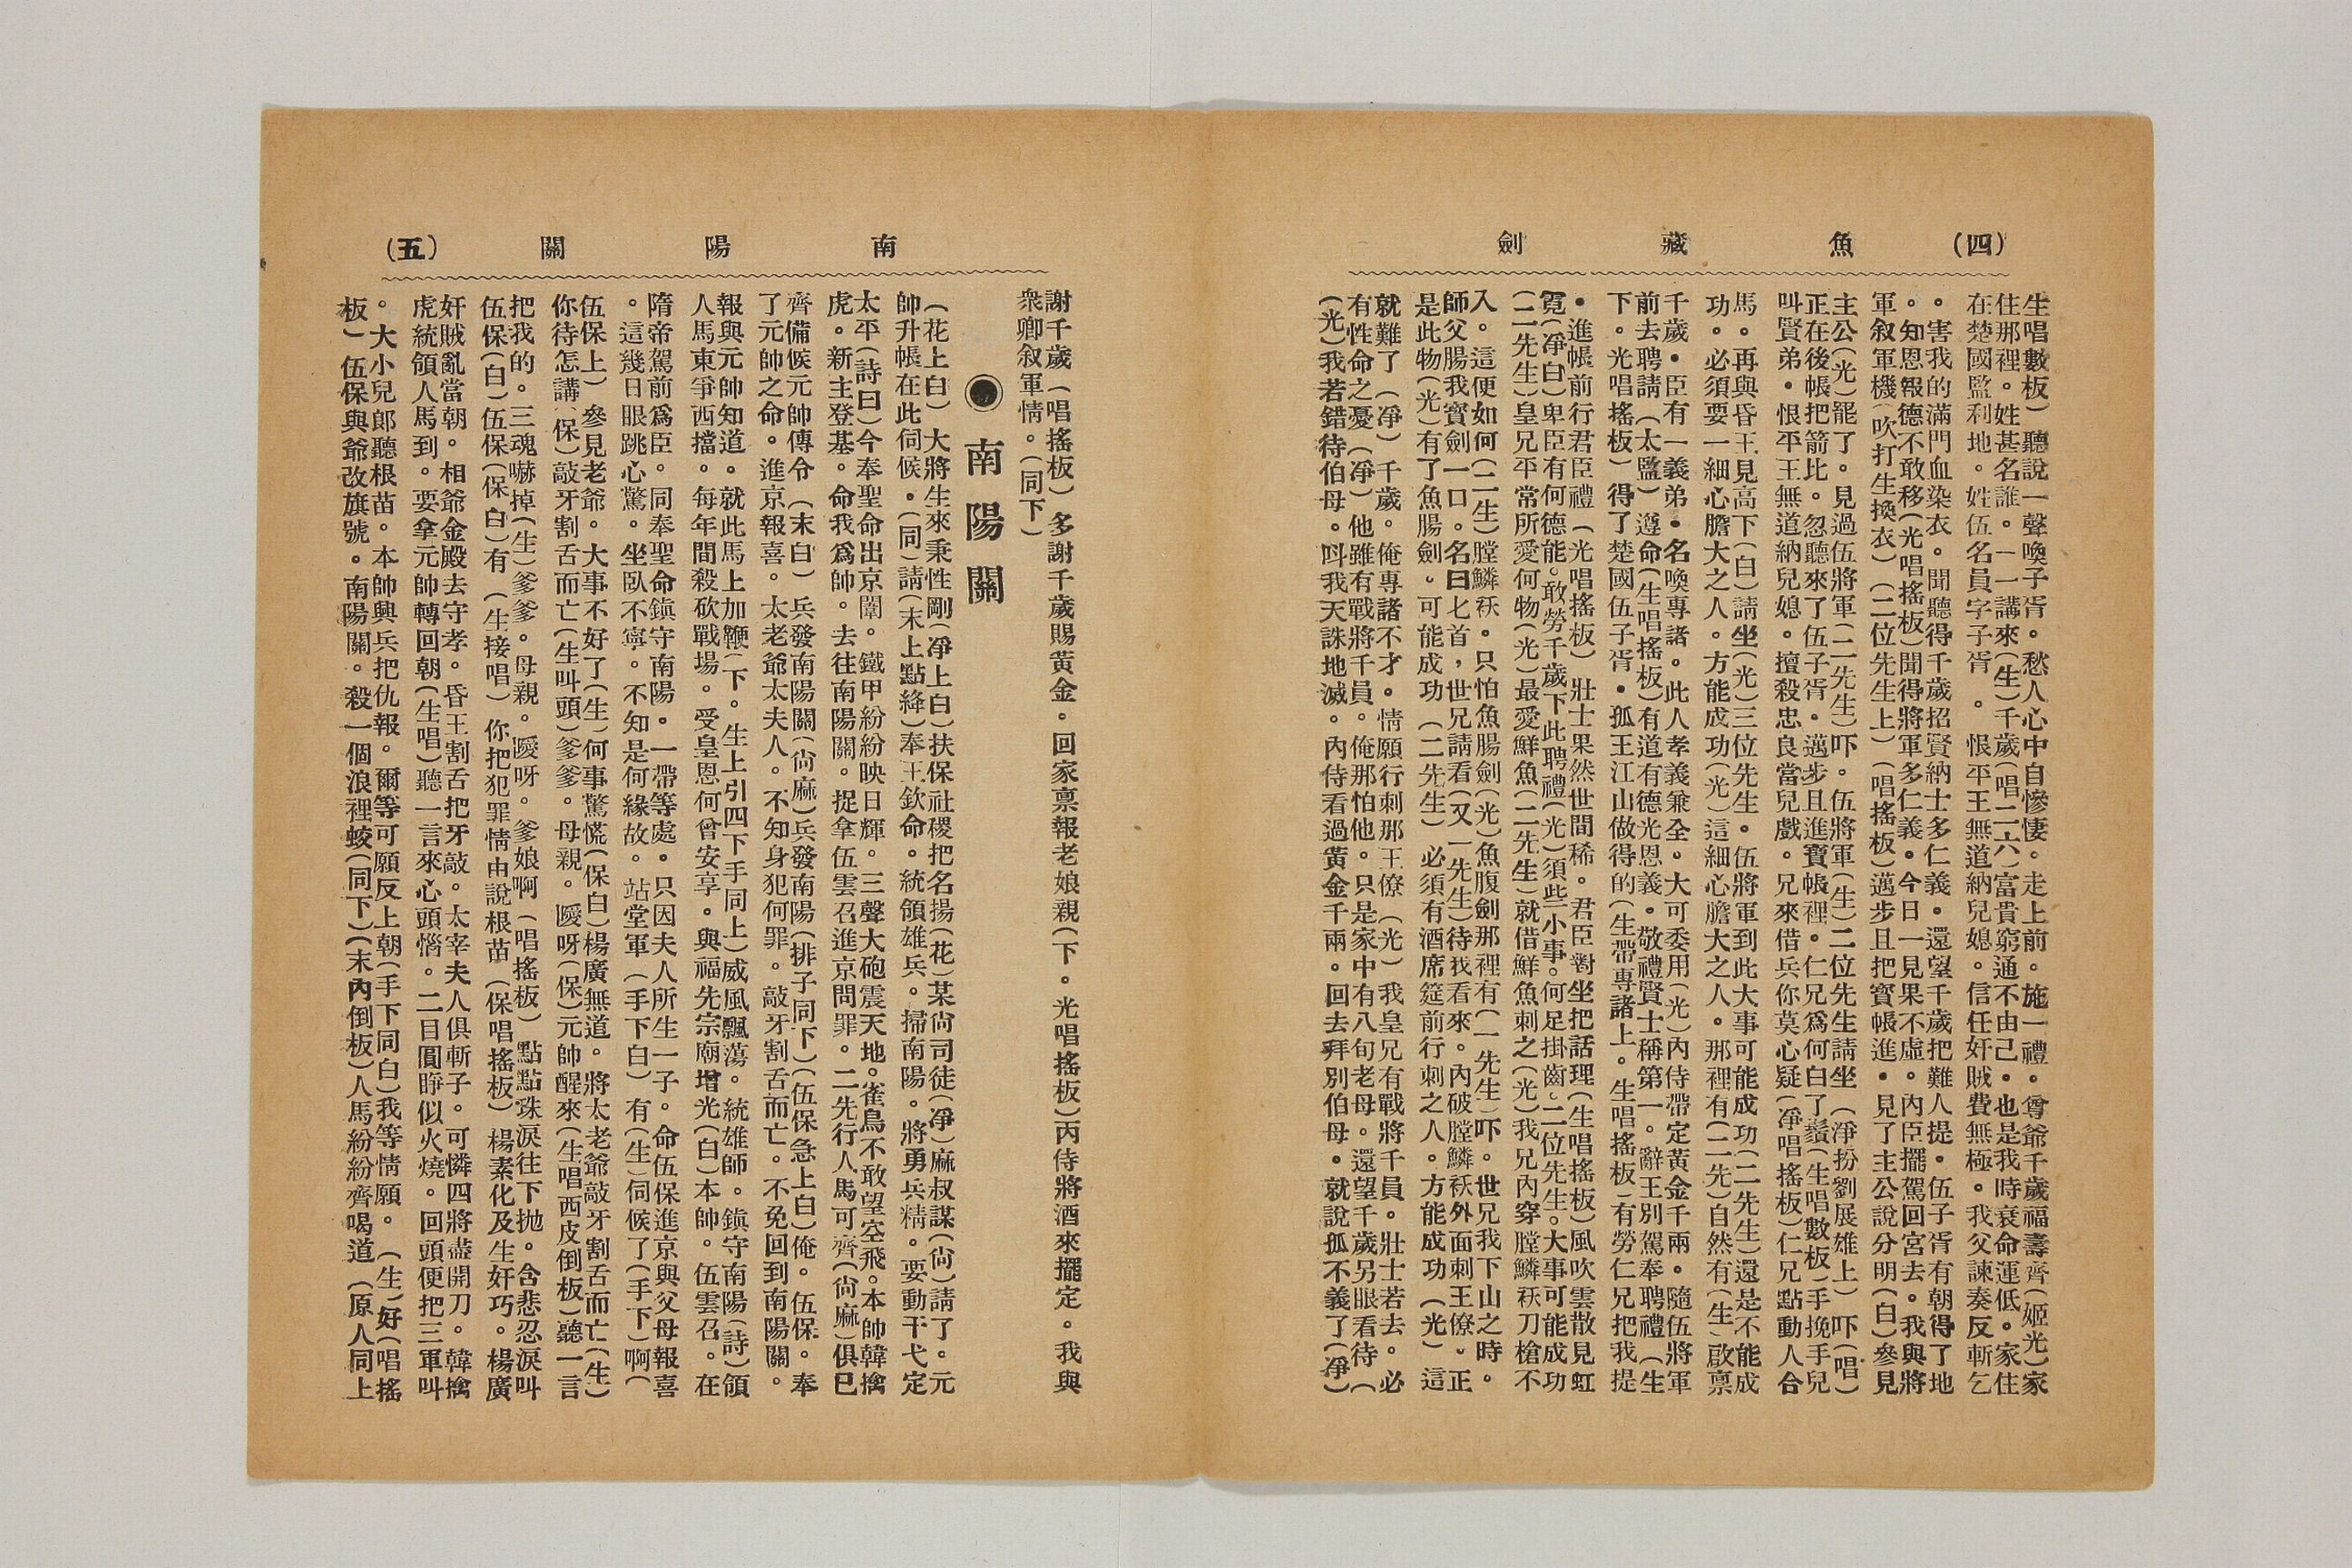 (四)　魚　藏　劍
生唱數板）聽說一聲喚子胥。愁人心中自慘悽。走上前。施一禮。尊爺千歲福壽齊（姬光）家
住那裡。姓甚名誰。一一講來（生）千歲（唱二六）富貴窮通不由己。也是我時衰命運低。家住
在楚國監利地。姓伍名員字子胥。恨平王無道納兒媳。信任奸賊費無極。我父諫奏反斬乞
。害我的滿門血染衣。聞聽得千歲招賢納士多仁義。還望千歲把難人提。伍子胥有朝得了地
。知恩報德不敢移（光唱搖板）聞得將軍多仁義。今日一見果不虛。內臣擺駕回宮去。我與將
軍叙軍機（吹打生換衣）（二位先生上）（唱搖板）邁步且把寳帳進。見了主公說分明（白）參見
主公（光）罷了。見過伍將軍（二先生）吓。伍將軍（生）二位先生請坐（淨扮劉展雄上）吓（唱）
正在後帳把箭比。忽聽來了伍子胥。邁步且進寶帳裡。仁兄爲何白了鬚（生唱數板）手挽手兒
叫賢弟。恨平王無道納兒媳。擅殺忠良當兒戲。兄來借兵你莫心疑（凈唱搖板）仁兄點動人合
馬。再與昏王見高下（白）請坐（光）三位先生。伍將軍到此大事可能成功（二先生）還是不能成
功。必須要一細心膽大之人。方能成功（光）這細心膽大之人。那裡有（二先）自然有（生）啟禀
千歲。臣有一義弟。名喚專諸。此人孝義兼全。大可委用（光）內侍帶定黃金千兩。隨伍將軍
前去聘請（太監）遵命（生唱搖板）有道有德光恩義。敬禮賢士稱第一。辭王別駕奉聘禮（生
下。光唱搖板）得了楚國伍子胥。孤王江山做得的（生帶專諸上。生唱搖板）有勞仁兄把我提
。進帳前行君臣禮（光唱搖板）壯士果然世間稀。君臣對坐把話理（生唱搖板）風吹雲散見虹
霓（凈白）卑臣有何德能。敢勞千歲下此聘禮（光）須些小事。何足掛齒。二位先生。大事可能成功
（二先生）皇兄平常所愛何物（光）最愛鮮魚（二先生）就借鮮魚刺之（光）我兄內穿膛鱗袄刀槍不
入。這便如何（二生）膛鱗袄。只怕魚腸劍（光）魚腹劍那裡有（一先生）吓。世兄我下山之時。
師父腸我寳劍一口。名曰七首，世兄請看（又一先生）待我看來。內破膛鱗袄外面刺王僚。正
是此物（光）有了魚腸劍。可能成功（二先生）必須有酒席筵前行刺之人。方能成功（光）這
就難了（凈）千歲。俺專諸不才。情願行刺那王僚（光）我皇兄有戰將千員。壯士若去。必
有性命之憂（凈）他雖有戰將千員。俺那怕他。只是家中有八旬老母。還望千歲另眼看待（
（光）我若錯待伯母。叫我天誅地滅。內侍看過黃金千兩。回去拜別伯母。就說孤不義了（凈）
南　陽　關　(五)
謝千歲（唱搖板）多謝千歲賜黃金。回家禀報老娘親（下。光唱搖板）丙侍將酒來擺定。我與
衆卿叙軍情。（同下）
南陽關
（花上白）大將生來秉性剛（凈上白）扶保社稷把名揚（花）某尙司徒（凈）麻叔謀（尙）請了。元
帥升帳在此伺候。（同）請（末上點絳）奉王欽命。統領雄兵。掃南陽。將勇兵精。要動干弋定
太平（詩曰）今奉聖命出京闈。鐵甲紛紛映日輝。三聲大砲震天地。雀鳥不敢望空飛。本帥韓擒
虎。新主登基。命我爲帥。去往南陽關。捉拿伍雲召進京問罪。二先行人馬可齊（尙麻）俱巳
齊備候元帥傳令（末白）兵發南陽關（尙麻）兵發南陽（排子同下）（伍保急上白）俺。伍保。奉
了元帥之命。進京報喜。太老爺太夫人。不知身犯何罪。敲牙割舌而亡。不免回到南陽關。
報與元帥知道。就此馬上加鞭（下。生上引四下手同上）威風飄蕩。統雄師。鎭守南陽（詩）領
人馬東爭西擋。每年間殺砍戰場。受皇恩何曾安享。與福先宗廟增光（白）本帥。伍雲召。在
隋帝駕前爲臣。同奉聖命鎭守南陽。一帶等處。只因夫人所生一子。命伍保進京與父母報喜
。這幾日眼跳心驚。坐臥不寧。不知是何緣故。站堂軍（手下白）有（生）伺候了（手下）啊（
伍保上）參見老爺。大事不好了（生）何事驚慌（保白）楊廣無道。將太老爺敲牙割舌而亡（生）
你待怎講（保）敲牙割舌而亡（生叫頭）爹爹。母親。曖呀（保）元帥醒來（生唱西皮倒板）聽一言
把我的。三魂嚇掉（生）爹爹。母親。曖呀。爹娘啊（唱搖板）點點珠淚往下抛。含悲忍淚叫
伍保（白）伍保（保白）有（生接唱）你把犯罪情由說根苗（保唱搖板）楊素化及生奸巧。楊廣
奸賊亂當朝。相爺金殿去守孝。昏王割舌把牙敲。太宰夫人俱斬子。可憐四將盡開刀。韓擒
虎統領人馬到。要拿元帥轉回朝（生唱）聽一言來心頭惱。二目圓睜似火燒。回頭便把三軍叫
。大小兒郎聽根苗。本帥興兵把仇報。爾等可願反上朝（手下同白）我等情願。（生）好（唱搖
板）伍保與爺改旗號。南陽關。殺一個浪裡蛟（同下）（末內倒板）人馬紛紛齊喝道（原人同上